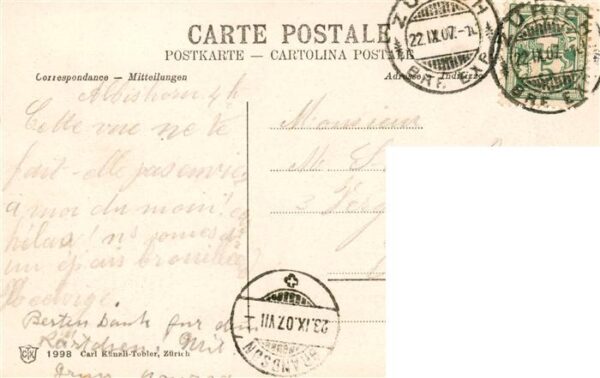 CARTE POSTALE
POSTKARTE – CARTOLINA POSTALE
Correspondance – Mitteilungen
Adresse – Indirizzo
ZÜRICH
22.IX.07.-
BRF. EXP.
ZÜRICH
22.IX.07.
BRF. EXP.
Albishorn 4 h
Cette vue ne te
fait-elle pas envie
a moi du moin!
hélas! ns somes ds
un épais brouillard
Monsieur
M
3
Besten Dank für die
Kärtchen! Mit
23.IX.07.VII
GRANDSON
1998 Carl Künzli-Tobler, Zürich